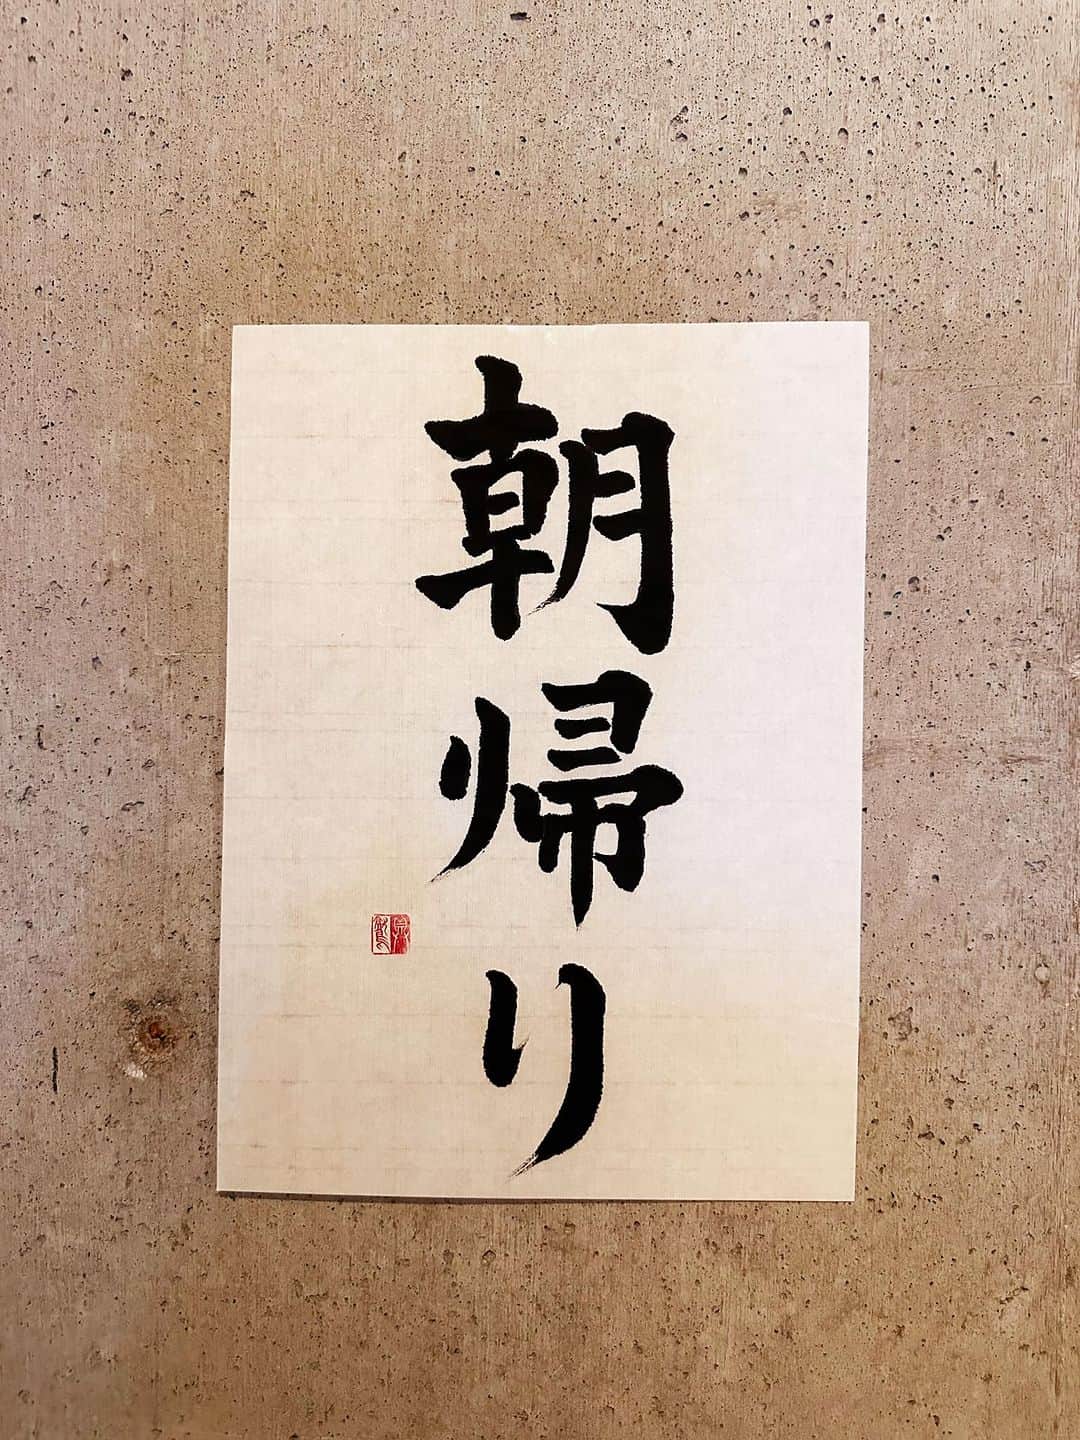 朝帰り